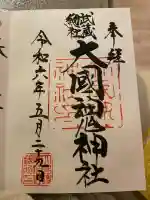 奉拝
武蔵
総社
大國魂神社
令和六年五月二十九日